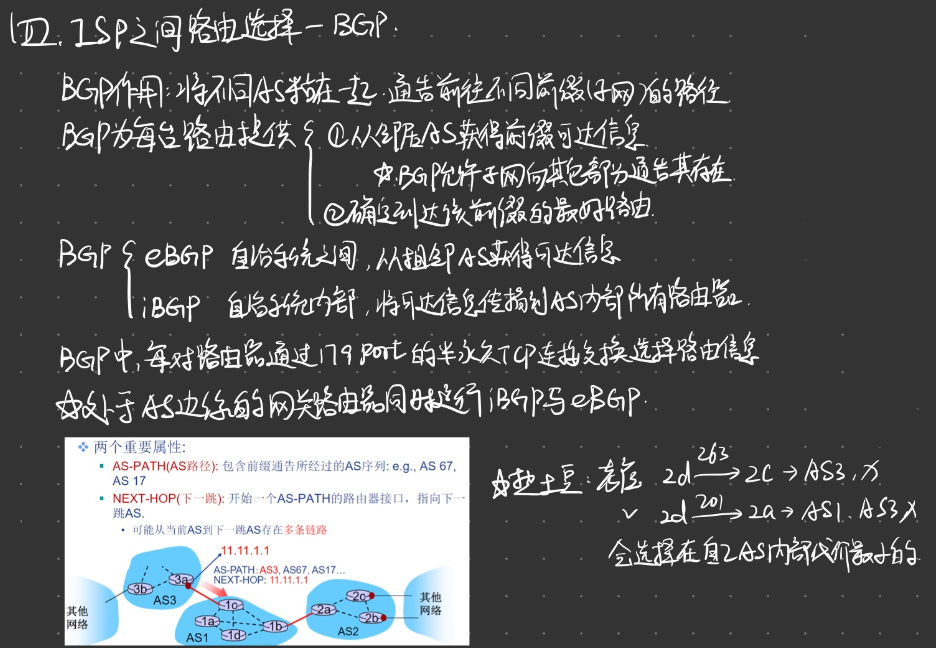 四. ISP之间路由选择 — BGP.
BGP作用: 将不同AS粘在一起. 通告前往不同前缀(子网)的路径
BGP为每台路由提供 { ①从邻居AS获得前缀可达信息
☆.BGP允许子网向其它部分通告其存在.
②确定到达该前缀的最好路由.
BGP { eBGP 自治系统之间, 从相邻AS获得可达信息
iBGP 自治系统内部, 将可达信息传播到AS内部所有路由器.
BGP中, 每对路由器通过179 port 的半永久TCP连接交换选择路由信息
☆处于AS边缘的网关路由器同时运行iBGP与eBGP.
❖ 两个重要属性:
▪ AS-PATH(AS路径): 包含前缀通告所经过的AS序列: e.g., AS 67,
AS 17
▪ NEXT-HOP(下一跳): 开始一个AS-PATH的路由器接口，指向下一
跳AS.
• 可能从当前AS到下一跳AS存在多条链路
11.11.1.1
AS-PATH: AS3, AS67, AS17…
NEXT-HOP: 11.11.1.1
3b
3a
AS3
其他
网络
1c
1a
1d
1b
AS1
2a
2c
2b
AS2
其他
网络
☆热土豆: 2d 263→ 2c → AS3. X
✓ 2d 201→ 2a → AS1. AS3 X
会选择在自己AS内部代价最小的.